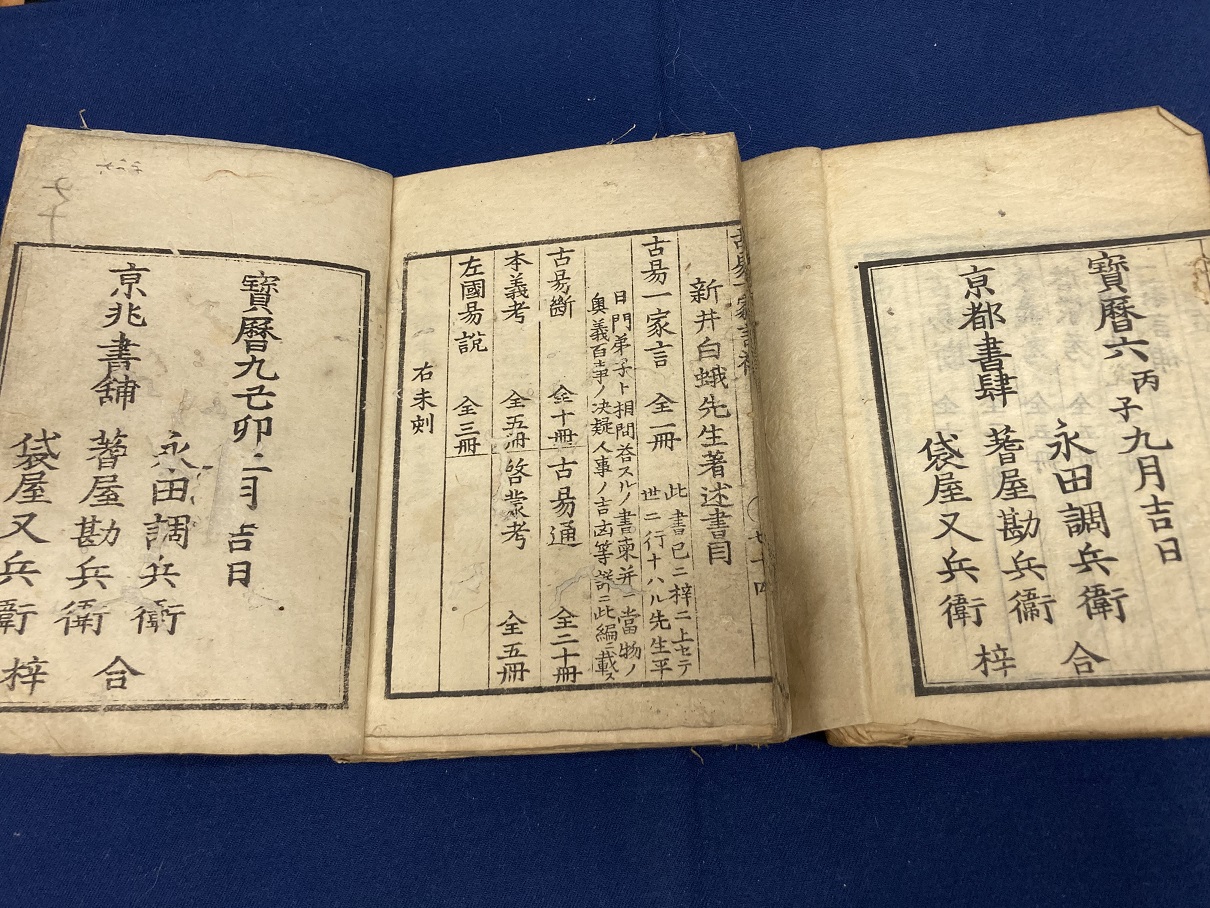 寶曆六丙子九月吉日
京都書肆
永田調兵衛
蓍屋勘兵衛
袋屋又兵衛
合
梓
新井白蛾先生著述書目
古易一家言 全一冊
此書已ニ梓ニ上セテ
世ニ行ナハル先生平
日門弟子ト相問答スルノ書柬并ニ當物ノ
奥義百事ノ决疑人事ノ吉凶等詳ニ此編ニ載ス
古易斷 全十冊 古易通 全二十冊
本義考 全五冊 啓蒙考 全五冊
左國易說 全三冊
右未刻
寶曆九己卯二月吉日
京兆書舖
永田調兵衛
蓍屋勘兵衛
袋屋又兵衛
合
梓